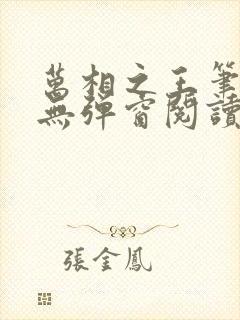 萬相之王筆
無彈窗閱讀
張金鳳